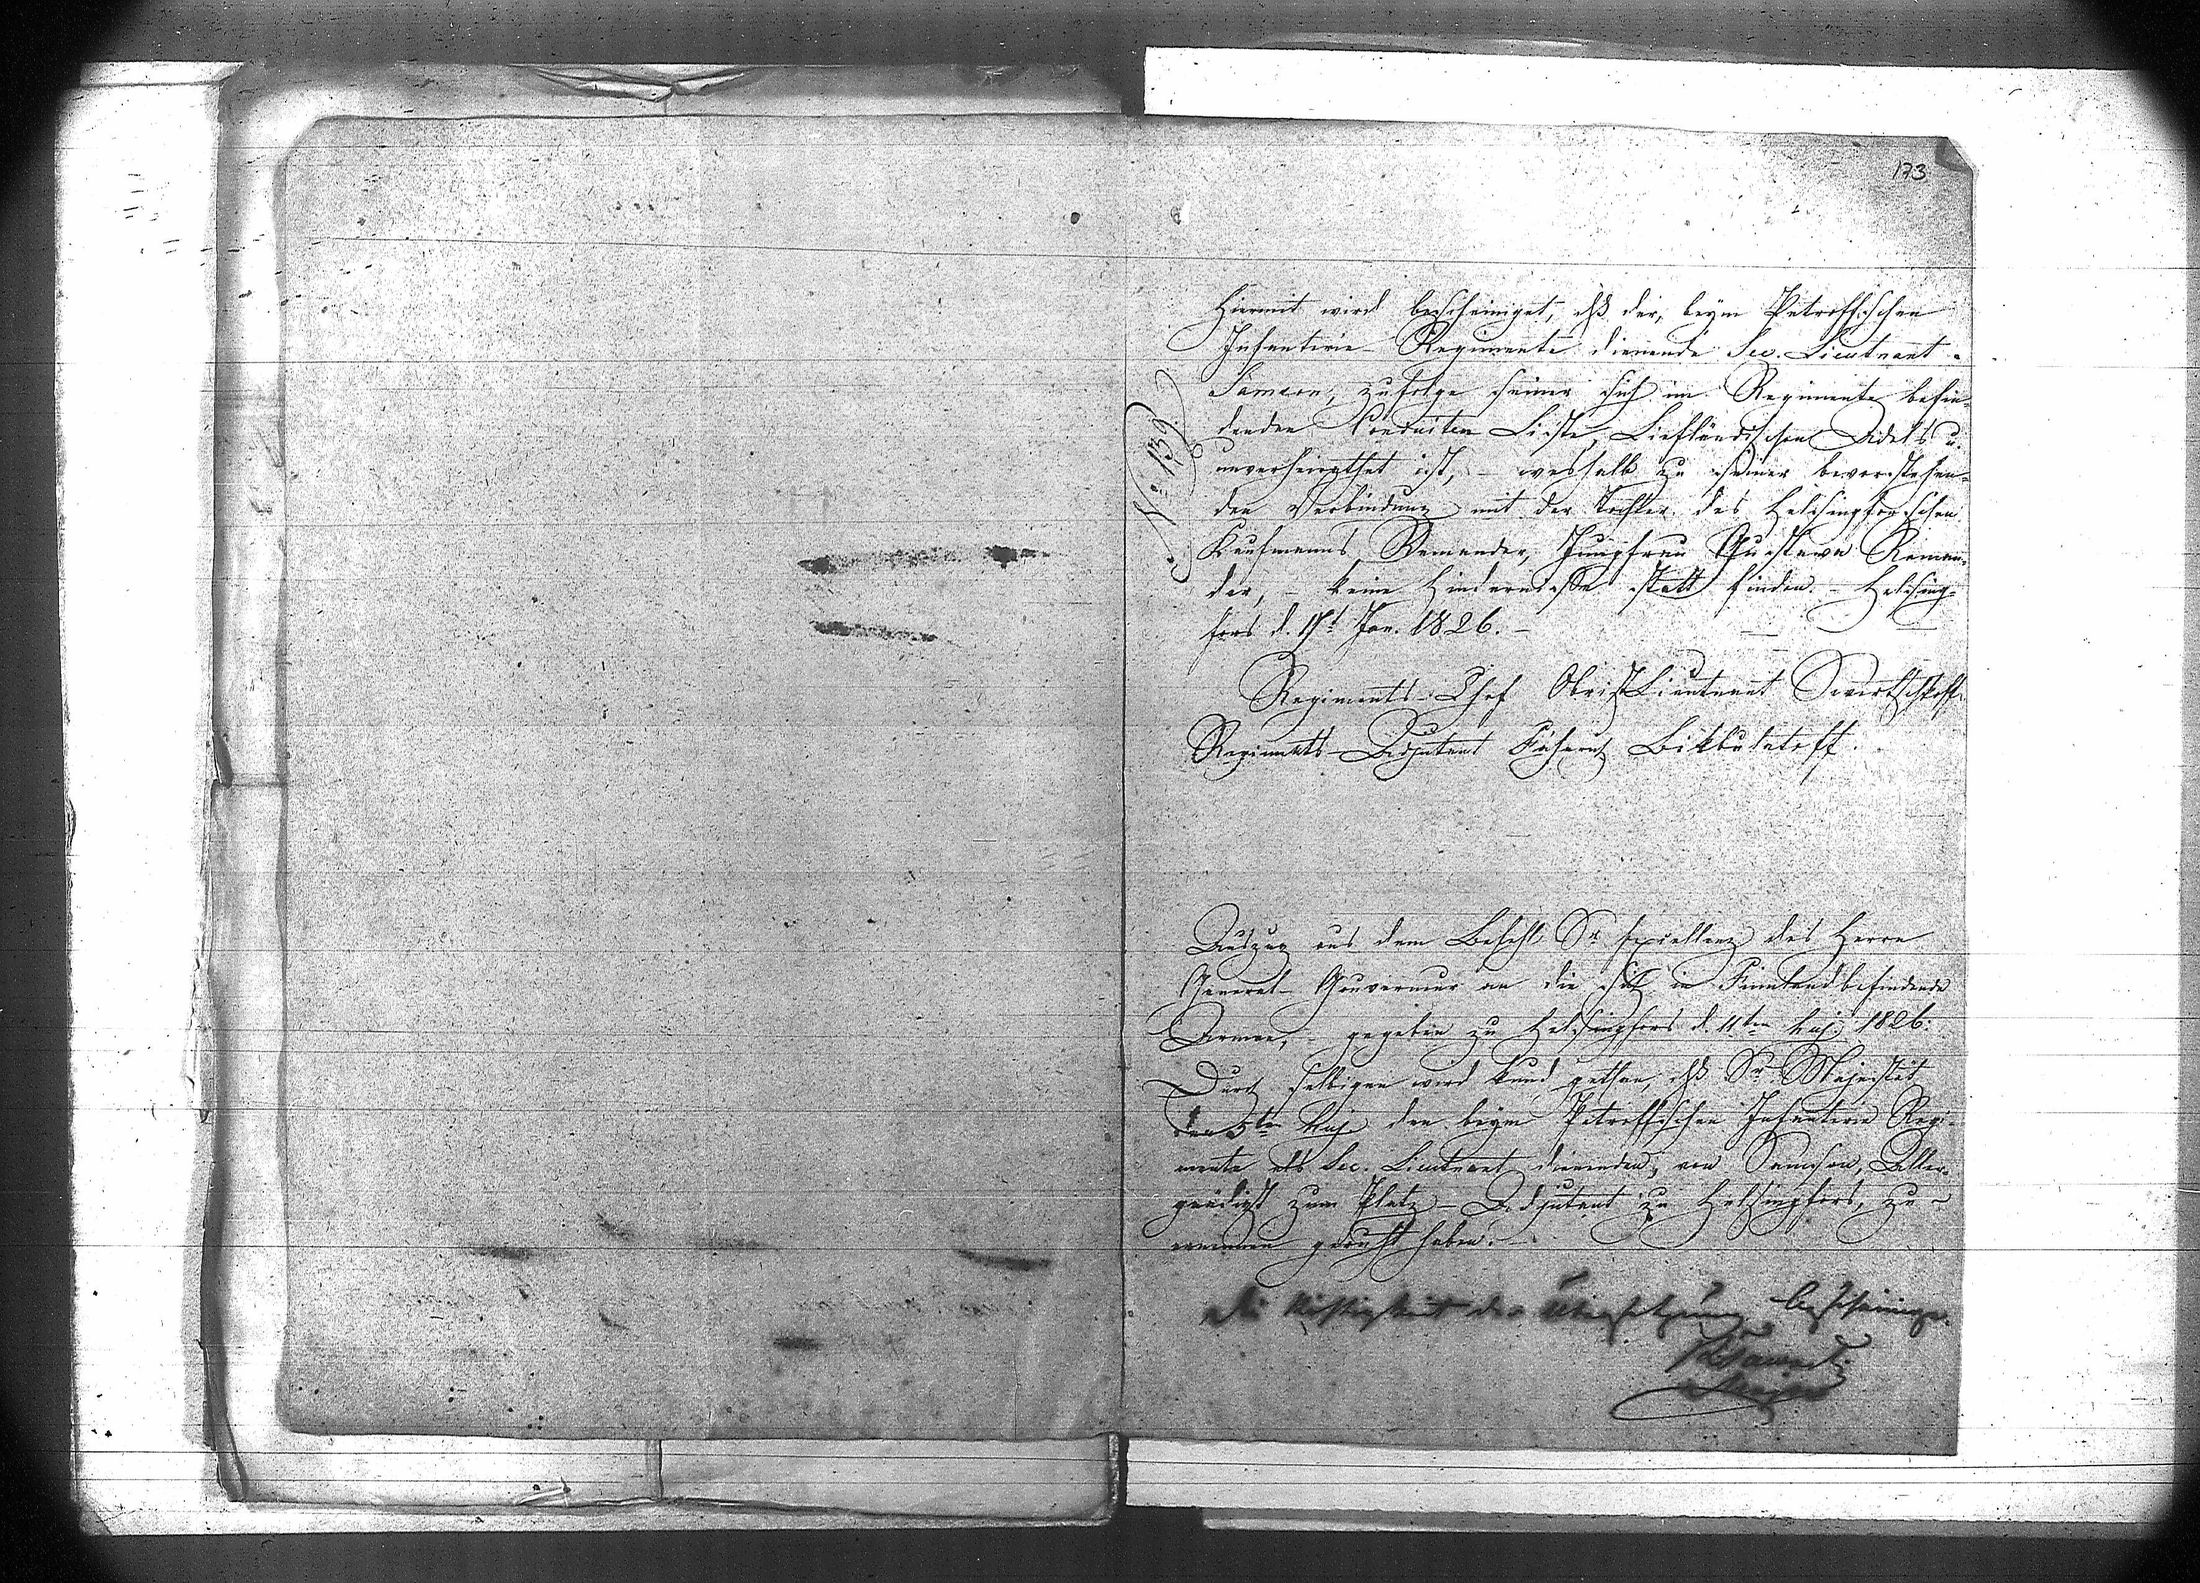 173
No 139.
Hiermit wird bescheiniget, dß der, beym Petroffschen
Infanterie-Regimente dienende Sec. Lieutnant
Samson, zufolge seiner sich im Regimente befin-
denden Conduiten Liste, Liefländischen Adels u.
unverheirathet ist, – weshalb zu seiner bevorstehen-
den Verbindung mit der Tochter des Helsingforschen
Kaufmanns Remander, Jungfrau Gustava Reman-
der, – keine Hindernisse statt finden. – Helsing-
fors d. Jan. 1826. –
Regiments-Chef Obrist Lieutnant
Regiments-Adjutant Fähnrich Bikbulatoff.
Auszug aus dem Befehl Sr Excellenz des Herrn
General-Gouverneur an die sich in Finnland befindende
Armee, – gegeben zu Helsingfors d. 11ten May 1826.
Durch selbigen wird kund gethan, dß Sr Majestät
den 5ten May den beym Petroffschen Infanterie Regi-
mente als Sec. Lieutnant dienenden, von Samson, Aller-
gnädigst zum Platz-Adjutant zu Helsingfors, zu
ernennen geruht haben.
Die Richtigkeit der Übersetzung bescheinige
Major